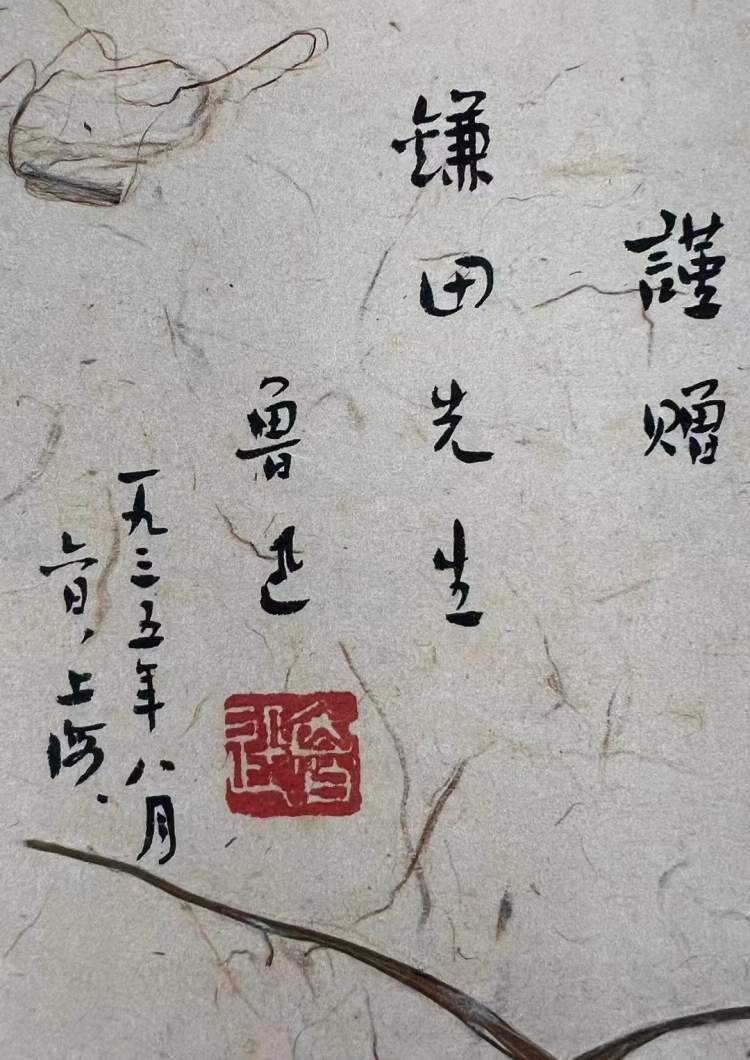 謹贈
鎌田先生
魯迅
一九三五年八月
六日，上海．
魯迅